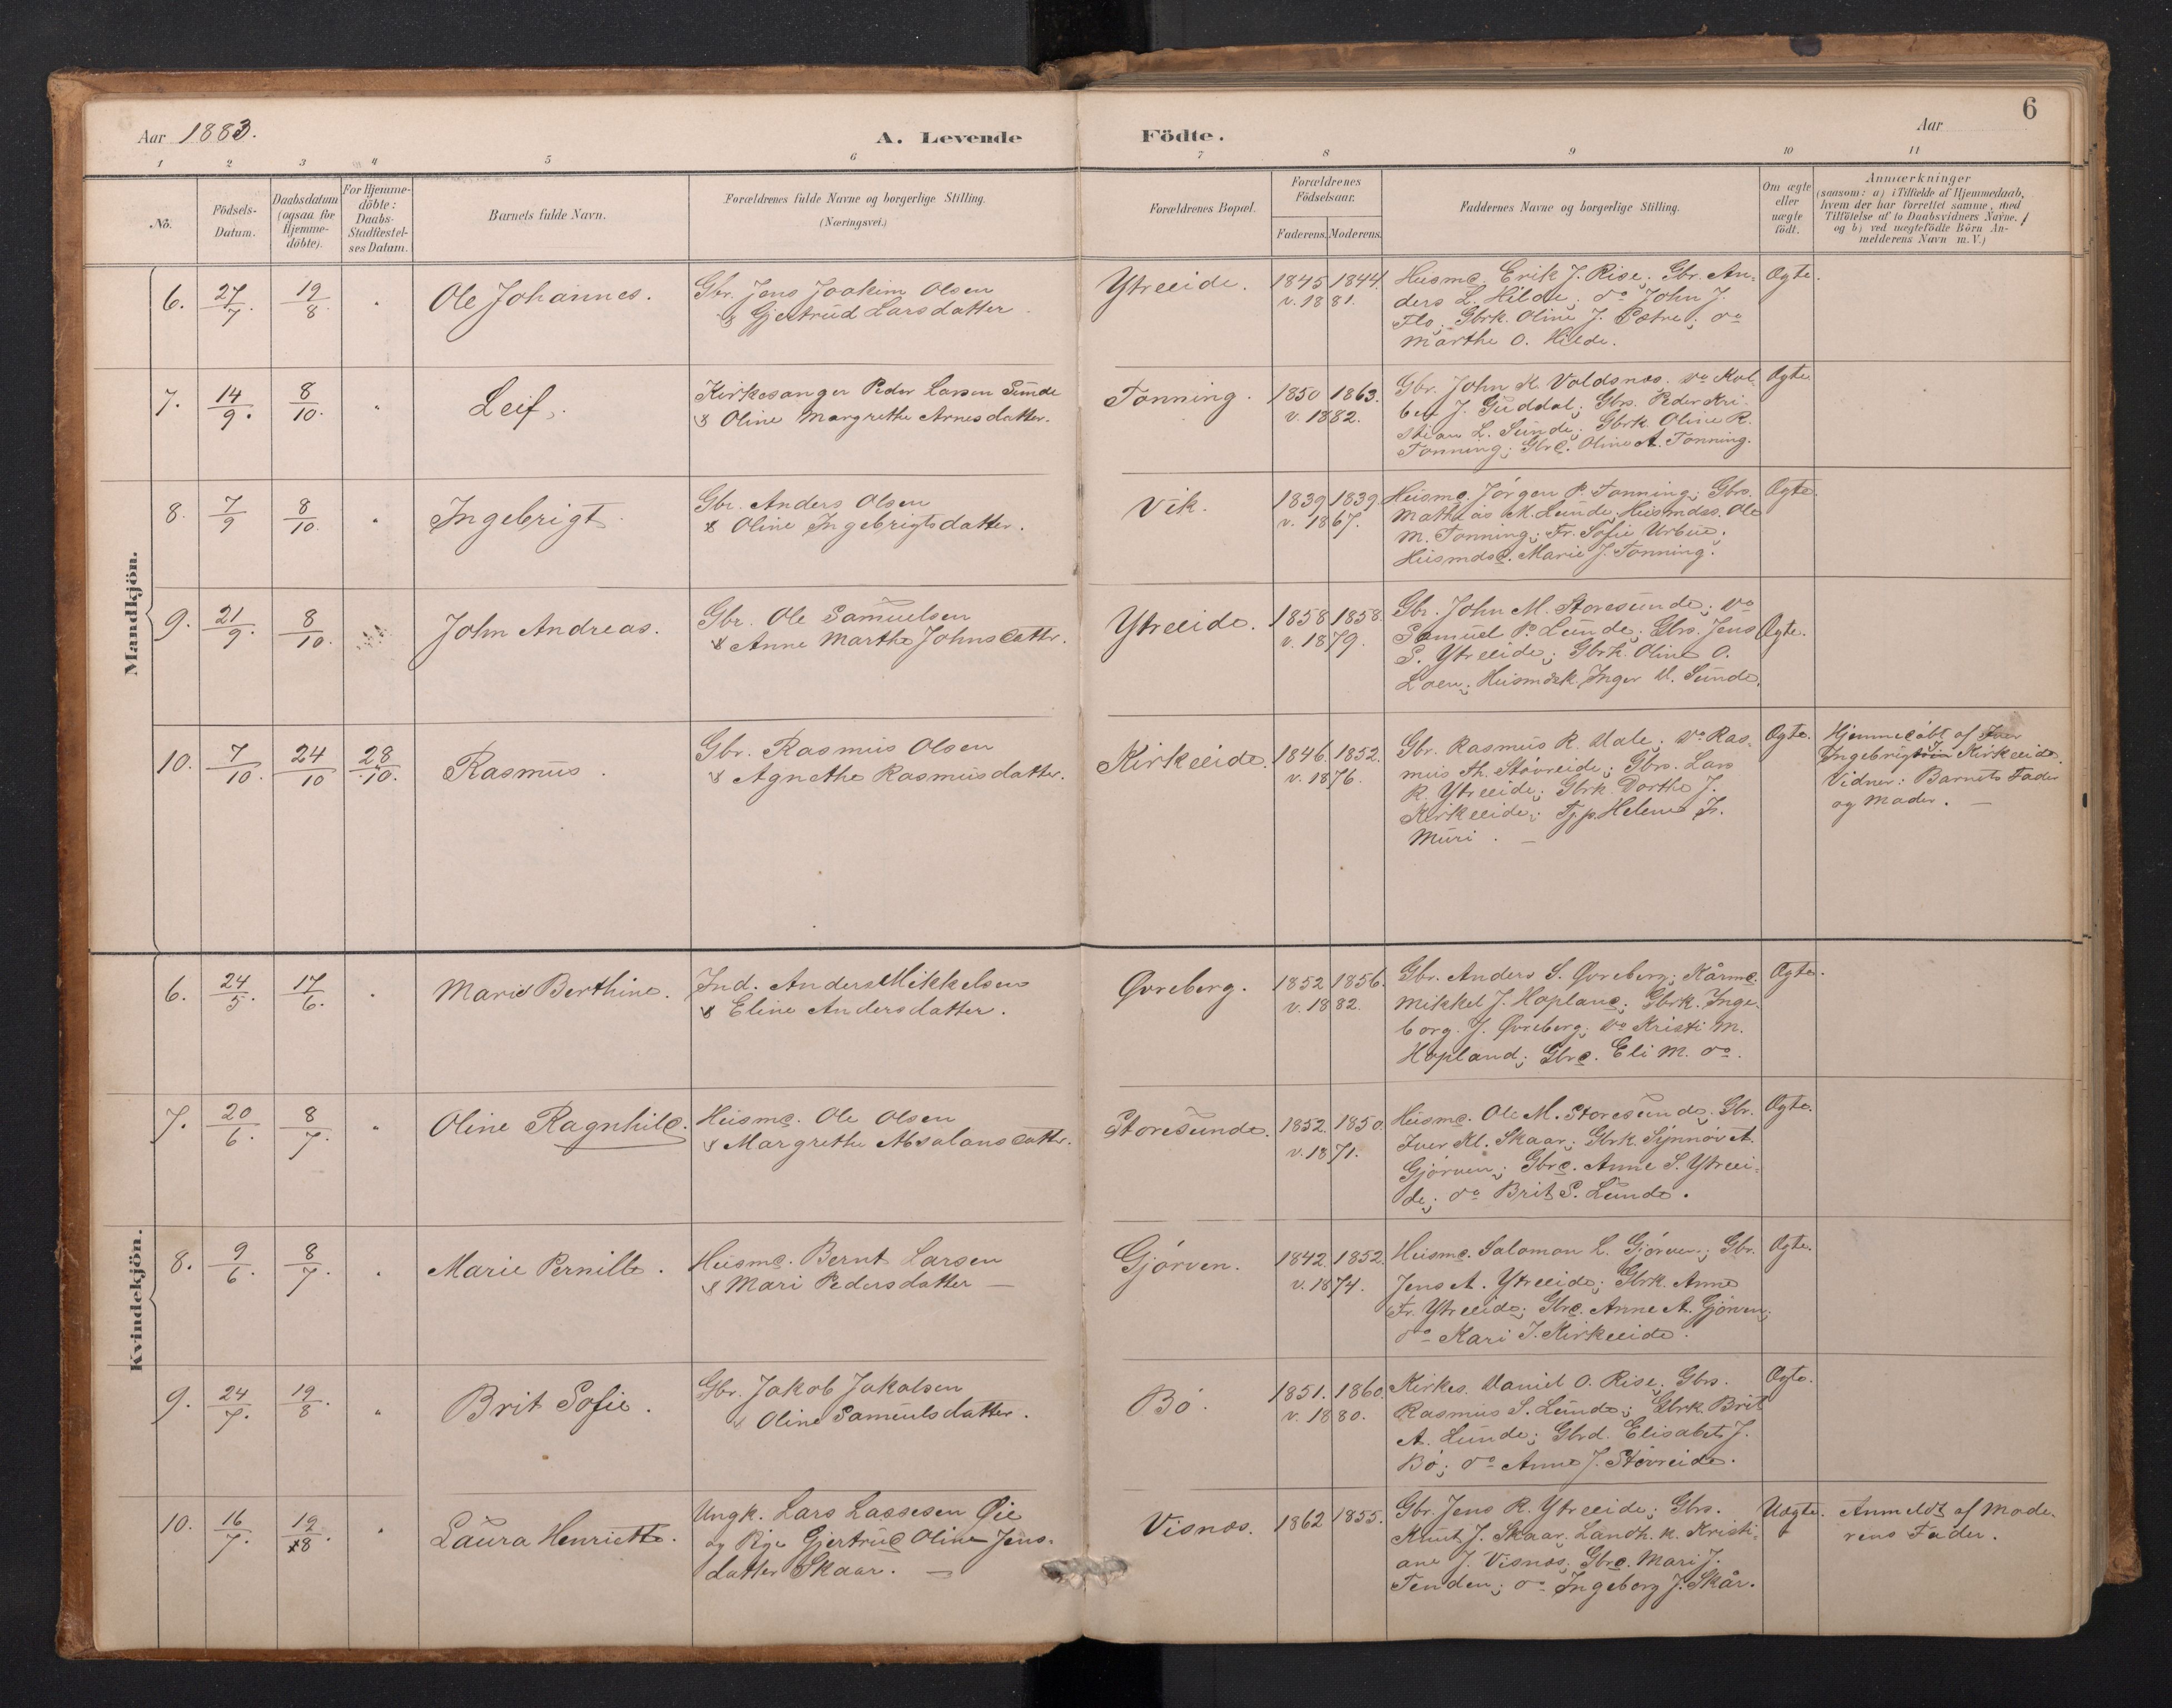 6
Aar 1883.
A. Levende Födte.
Aar
1 2 3 4 5 6 7 8 9 10 11
No.
Födsels-
Datum.
Daabsdatum
(ogsaa for
Hjemme-
döbte).
For Hjemme-
döbte:
Daabs-
Stadfæstel-
ses Datum.
Barnets fulde Navn.
Forældrenes fulde Navne og borgerlige Stilling.
(Næringsvei.)
Forældrenes Bopæl.
Forældrenes
Födselsaar.
Faderens. Moderens.
Faddernes Navne og borgerlige Stilling.
Om ægte
eller
uægte
födt.
Anmærkninger
(saasom: a) i Tilfælde af Hjemmedaab,
hvem der har forrettet samme, med
Tilföielse af to Daabsvidners Navne,
og b) ved uægtefödte Börn An-
melderens Navn m.V.)
Mandkjön.
6. 27/7. 19/8 " Ole Johannes.
Gbr. Jens Joakim Olsen
& Gjertrud Larsdatter.
Ytreeide. 1845 1844.
v. 1881.
Husmd. Erik J. Rise; Gbr. An-
ders L. Hilde; do John J.
Flo; Gbrk. Oline J. Sætre; do
Marthe O. Hilde.
Ægte.
7. 14/9. 8/10. " Leif.
Kirkesanger Peder Larsen Sunde
& Oline Margrethe Arnesdatter.
Tonning. 1850 1863.
v. 1882.
Gbr. John K. Voldsnes; do Kol-
ben J. Guddal; Gbrs. Peder Kri-
stian L. Sunde; Gbrk. Oline R.
Tonning; Gbrd. Oline A. Tonning.
Ægte
8. 7/9 8/10. " Ingebrigt.
Gbr. Anders Olsen
& Oline Ingebrigtsdatter.
Vik. 1839 1839.
v. 1867.
Husmd. Jørgen P. Tonning; Gbrs.
Mathias M. Lunde; Husmdss. Ole
M. Tonning; Fr. Sofie Urbue;
Husmdsd. Marie J. Tonning.
Ægte.
9. 21/9. 8/10. John Andreas.
Gbr. Ole Samuelsen
& Anne Marthe Johnsdatter.
Ytreeide. 1858 1858.
v. 1879.
Gbr. John M. Storesunde; do
Samuel P. Lunde; Gbrs. Jens
S. Ytreeide; Gbrk. Oline O.
Loen; Husmdsk. Inger D. Sunde.
Ægte.
10. 7/10. 24/10 28/10. Rasmus.
Gbr. Rasmus Olsen
& Agnethe Rasmusdatter.
Kirkeeide. 1846. 1852.
v. 1876.
Gbr. Rasmus R. Dale; do Ras-
mus Th. Støvreide; Gbrs. Lars
R. Ytreeide; Gbrk. Dorthe J.
Kirkeeide; Tj.p. Helene Fr.
Muri. —
Ægte.
Hjemmedøbt af Iver
Kirkeeide.
Vidner: Barnets Fader
og Moder. —
Kvindekjön.
6. 24/5. 17/6. " Marie Berthine.
Ind. Anders Mikkelsen
& Eline Andersdatter.
Øvreberg. 1852 1856.
v. 1882.
Gbr. Anders S. Øvreberg; Kårmd.
Mikkel J. Hopland; Gbrk. Inge-
borg J. Øvreberg; do Kristi M.
Hopland; Gbrd. Eli M. do.
Ægte.
7. 20/6. 8/7. " Oline Ragnhild.
Husmd. Ole Olsen
& Margrethe Absalonsdatter.
Storesunde. 1852. 1850.
v. 1871.
Husmd. Ole M. Storesunde; Gbr.
Iver Kl. Skaar; Gbrk. Synnøv A.
Gjørven; Gbrd. Anne S. Ytreei-
de; do Brit S. Lunde.
Ægte.
8. 9/6. 8/7. " Marie Pernille.
Husmd. Bernt Larsen
& Mari Pedersdatter —
Gjørven. 1842. 1852.
v. 1874.
Husmd. Salomon L. Gjørven; Gbr.
Jens A. Ytreeide; Gbrk. Anne
Fr. Ytreeide; Gbrd. Anne A. Gjørven;
do Kari I. Kirkeeide.
Ægte.
9. 24/7. 19/8. " Brit Sofie.
Gbr. Jakob Jakobsen
& Oline Samuelsdatter.
Bø. 1851. 1860.
v. 1880.
Kirkes. Daniel O. Rise; Gbrs.
Rasmus S. Lunde; Gbrk. Brit
A. Lunde; Gbrd. Elisabet J.
Bø; do Anne J. Støvreide.
Ægte.
10. 16/7. 19/8. " Laura Henriette.
Ungk. Lars Lassesen Øie
og Pige Gjertrud Oline Jens-
datter Skaar. —
Visnes. 1862 1855.
Gbr. Jens R. Ytreeide; Gbrs.
Knut J. Skaar; Landh. k. Kristi-
ane J. Visnes; Gbrd. Mari J.
Tenden; do Ingeborg J. Skår.
Uægte.
Anmeldt af Mode-
rens Fader.